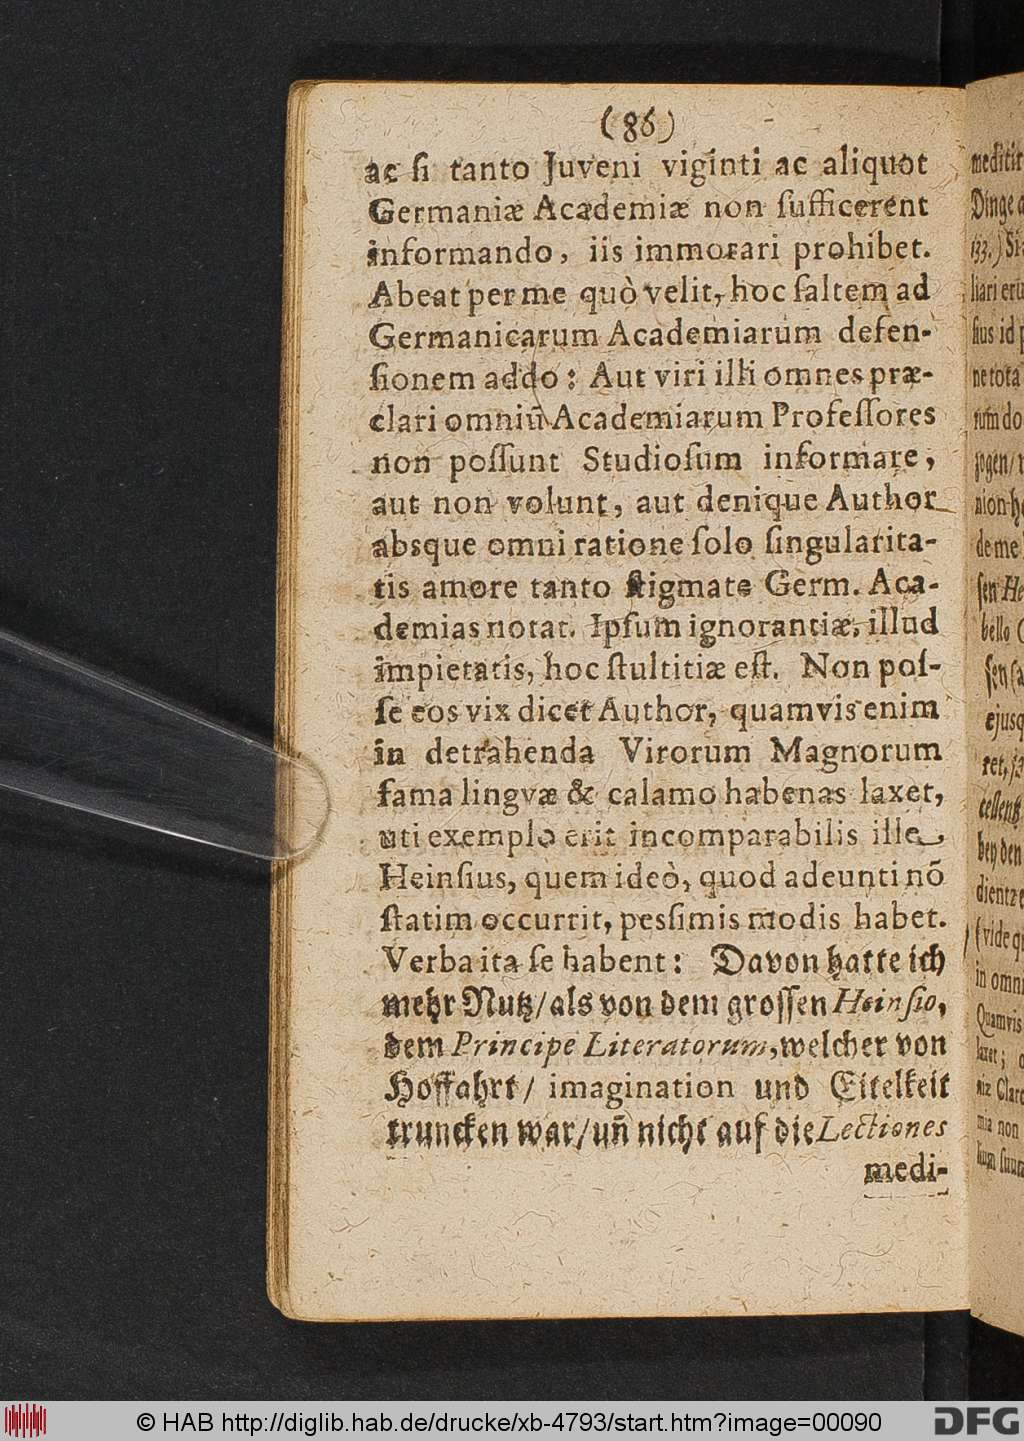 (86)
ac ſi tanto Juveni viginti ac aliquot
Germaniæ Academiæ non ſufficerent
informando, iis immorari prohibet.
Abeat per me quò velit, hoc ſaltem ad
Germanicarum Academiarum defen-
ſionem addo: Aut viri illi omnes præ-
clari omniũ Academiarum Profeſſores
non poſſunt Studioſum informare,
aut non volunt, aut denique Author
absque omni ratione ſolo ſingularita-
tis amore tanto ſtigmate Germ. Aca-
demias notat. Ipſum ignorantiæ, illud
impietatis, hoc ſtultitiæ eſt. Non poſ-
ſe eos vix dicet Author, quamvis enim
in detrahenda Virorum Magnorum
fama lingvæ & calamo habenas laxet,
uti exemplo erit incomparabilis ille
Heinſius, quem ideò, quod adeunti nõ
ſtatim occurrit, pesſimis modis habet.
Verba ita ſe habent: Davon hatte ich
mehr Nutz/als von dem groſſen Heinſio,
dem Principe Literatorum, welcher von
Hoffahrt/ imagination und Eitelkeit
truncken war/uñ nicht auf die Lectiones
medi-
meditir
Dinge
133.) Si
liari
ſius id
ne tota
rum do
zogen/
nion
de me
ſen He
bello
ſen
ejusq
ret,
cellent
bey den
(vide
in omni
Quamvis
laxet;
niæ
mia non
© HAB http://diglib.hab.de/drucke/xb-4793/start.htm?image=00090
DFG